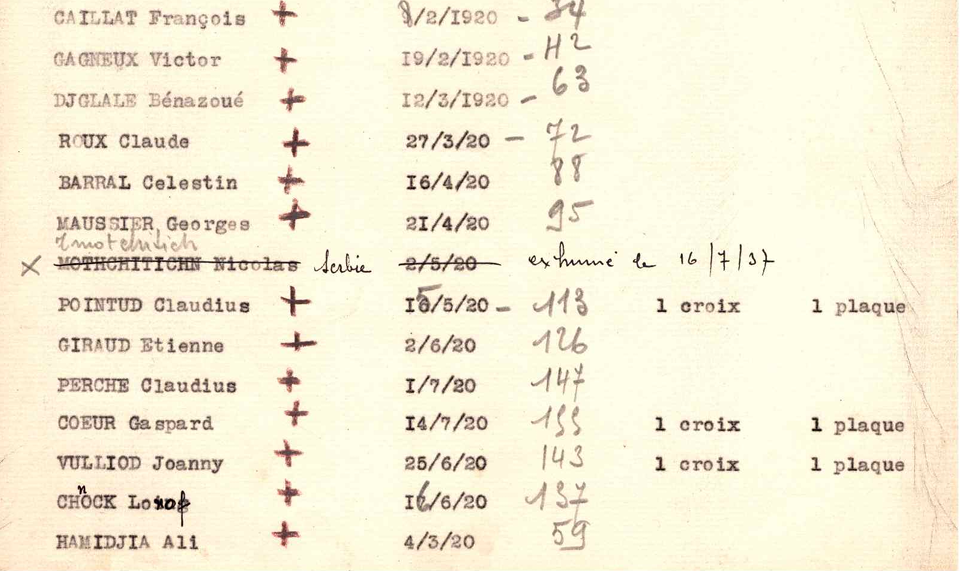 CAILLAT François + 8/2/1920 - 34
GAGNEUX Victor + 19/2/1920 - 42
DJGLALE Bénazoué + 12/3/1920 - 63
ROUX Claude + 27/3/20 - 72
BARRAL Celestin + 16/4/20 88
MAUSSIER Georges + 21/4/20 95
× MOTHCHITICHN Nicolas Serbie 2/5/20 exhumé le 16/7/37
POINTUD Claudius + 15/5/20 - 113 1 croix 1 plaque
GIRAUD Etienne + 2/6/20 126
PERCHE Claudius + I/7/20 147
COEUR Gaspard + I4/7/20 155 1 croix 1 plaque
VULLIOD Joanny + 25/6/20 143 1 croix 1 plaque
+ 16/6/20 137
HAMIDJIA Ali + 4/3/20 59